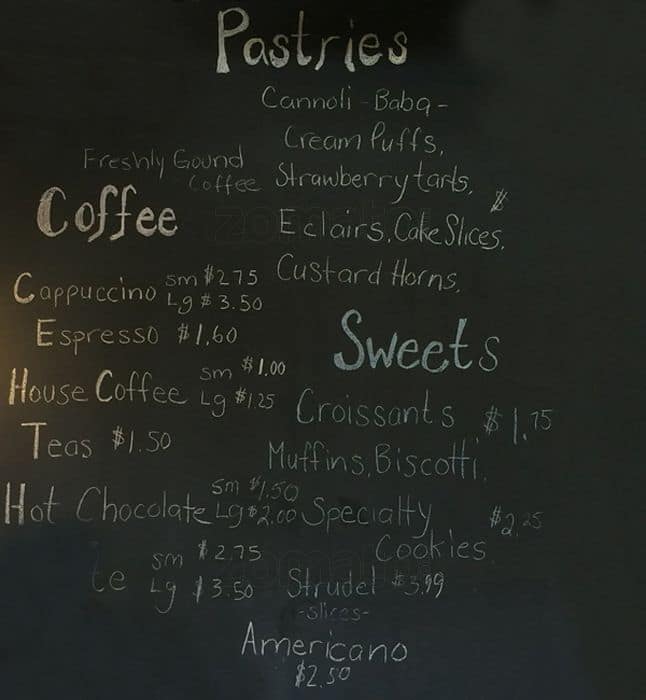 Pastries
Cannoli - Baba -
Cream Puffs,
Strawberry tarts,
Eclairs, Cake Slices,
Custard Horns,
Freshly Gound
Coffee
Coffee
Cappuccino sm $2.75
Lg $3.50
Espresso $1.60
House Coffee sm $1.00
Lg $1.25
Teas $1.50
Hot Chocolate sm $1.50
Lg $2.00
te sm $2.75
Lg $3.50
Sweets
Croissants $1.75
Muffins, Biscotti,
Specialty $2.25
Cookies
Strudel $3.99
-slices-
Americano
$2.50